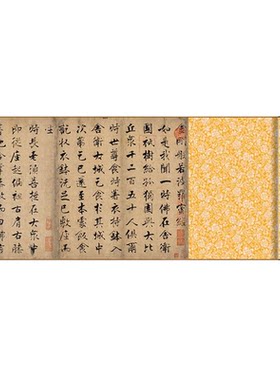 金剛般若波羅蜜經
如是我聞一時佛在舍衛
國祇樹給孤獨園與大比
丘衆千二百五十人俱爾
時世尊食時著衣持鉢入
舍衛大城乞食於其城中
次第乞已還至本處飯食
訖收衣鉢洗足已敷座而
坐
時長老須菩提在大衆中
即從座起偏袒右肩右膝